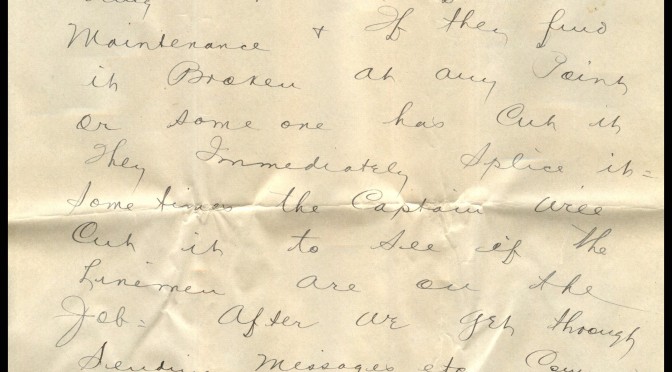 Maintenance + If they find
it Broken at any Point
or some one has Cut it
They Immediately Splice it=
Sometimes the Captain will
Cut it to see if the
Linemen are on the
Job= After we get through
Sending Messages etc